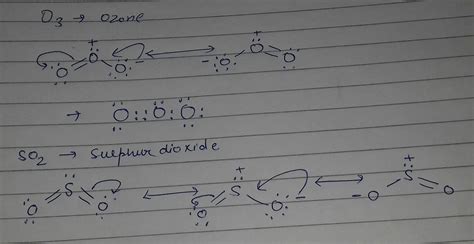 O₃ → Ozone
+
:O = O - O: - ⟷ - :O - O = O
+
→ :O::O:O:
SO₂ → Sulphur dioxide
O = S = O ⟷ O = S - O: - ⟷ - O - S = O
+ +